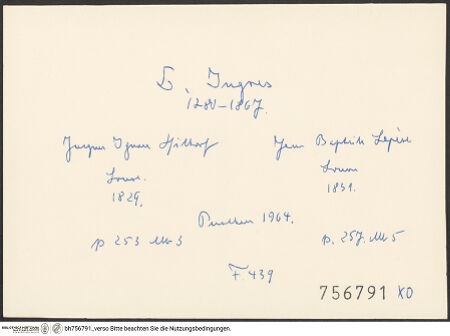 D. Ingres
1780-1867.
Jacques Ignace Hittorf
Jean Baptiste Lepère
Louvre.
Louvre
1829.
1831.
1964.
p 253 Nb 3
p. 257. Nb 5
F. 439
756791 XO
bh756791_verso Bitte beachten Sie die Nutzungsbedingungen.